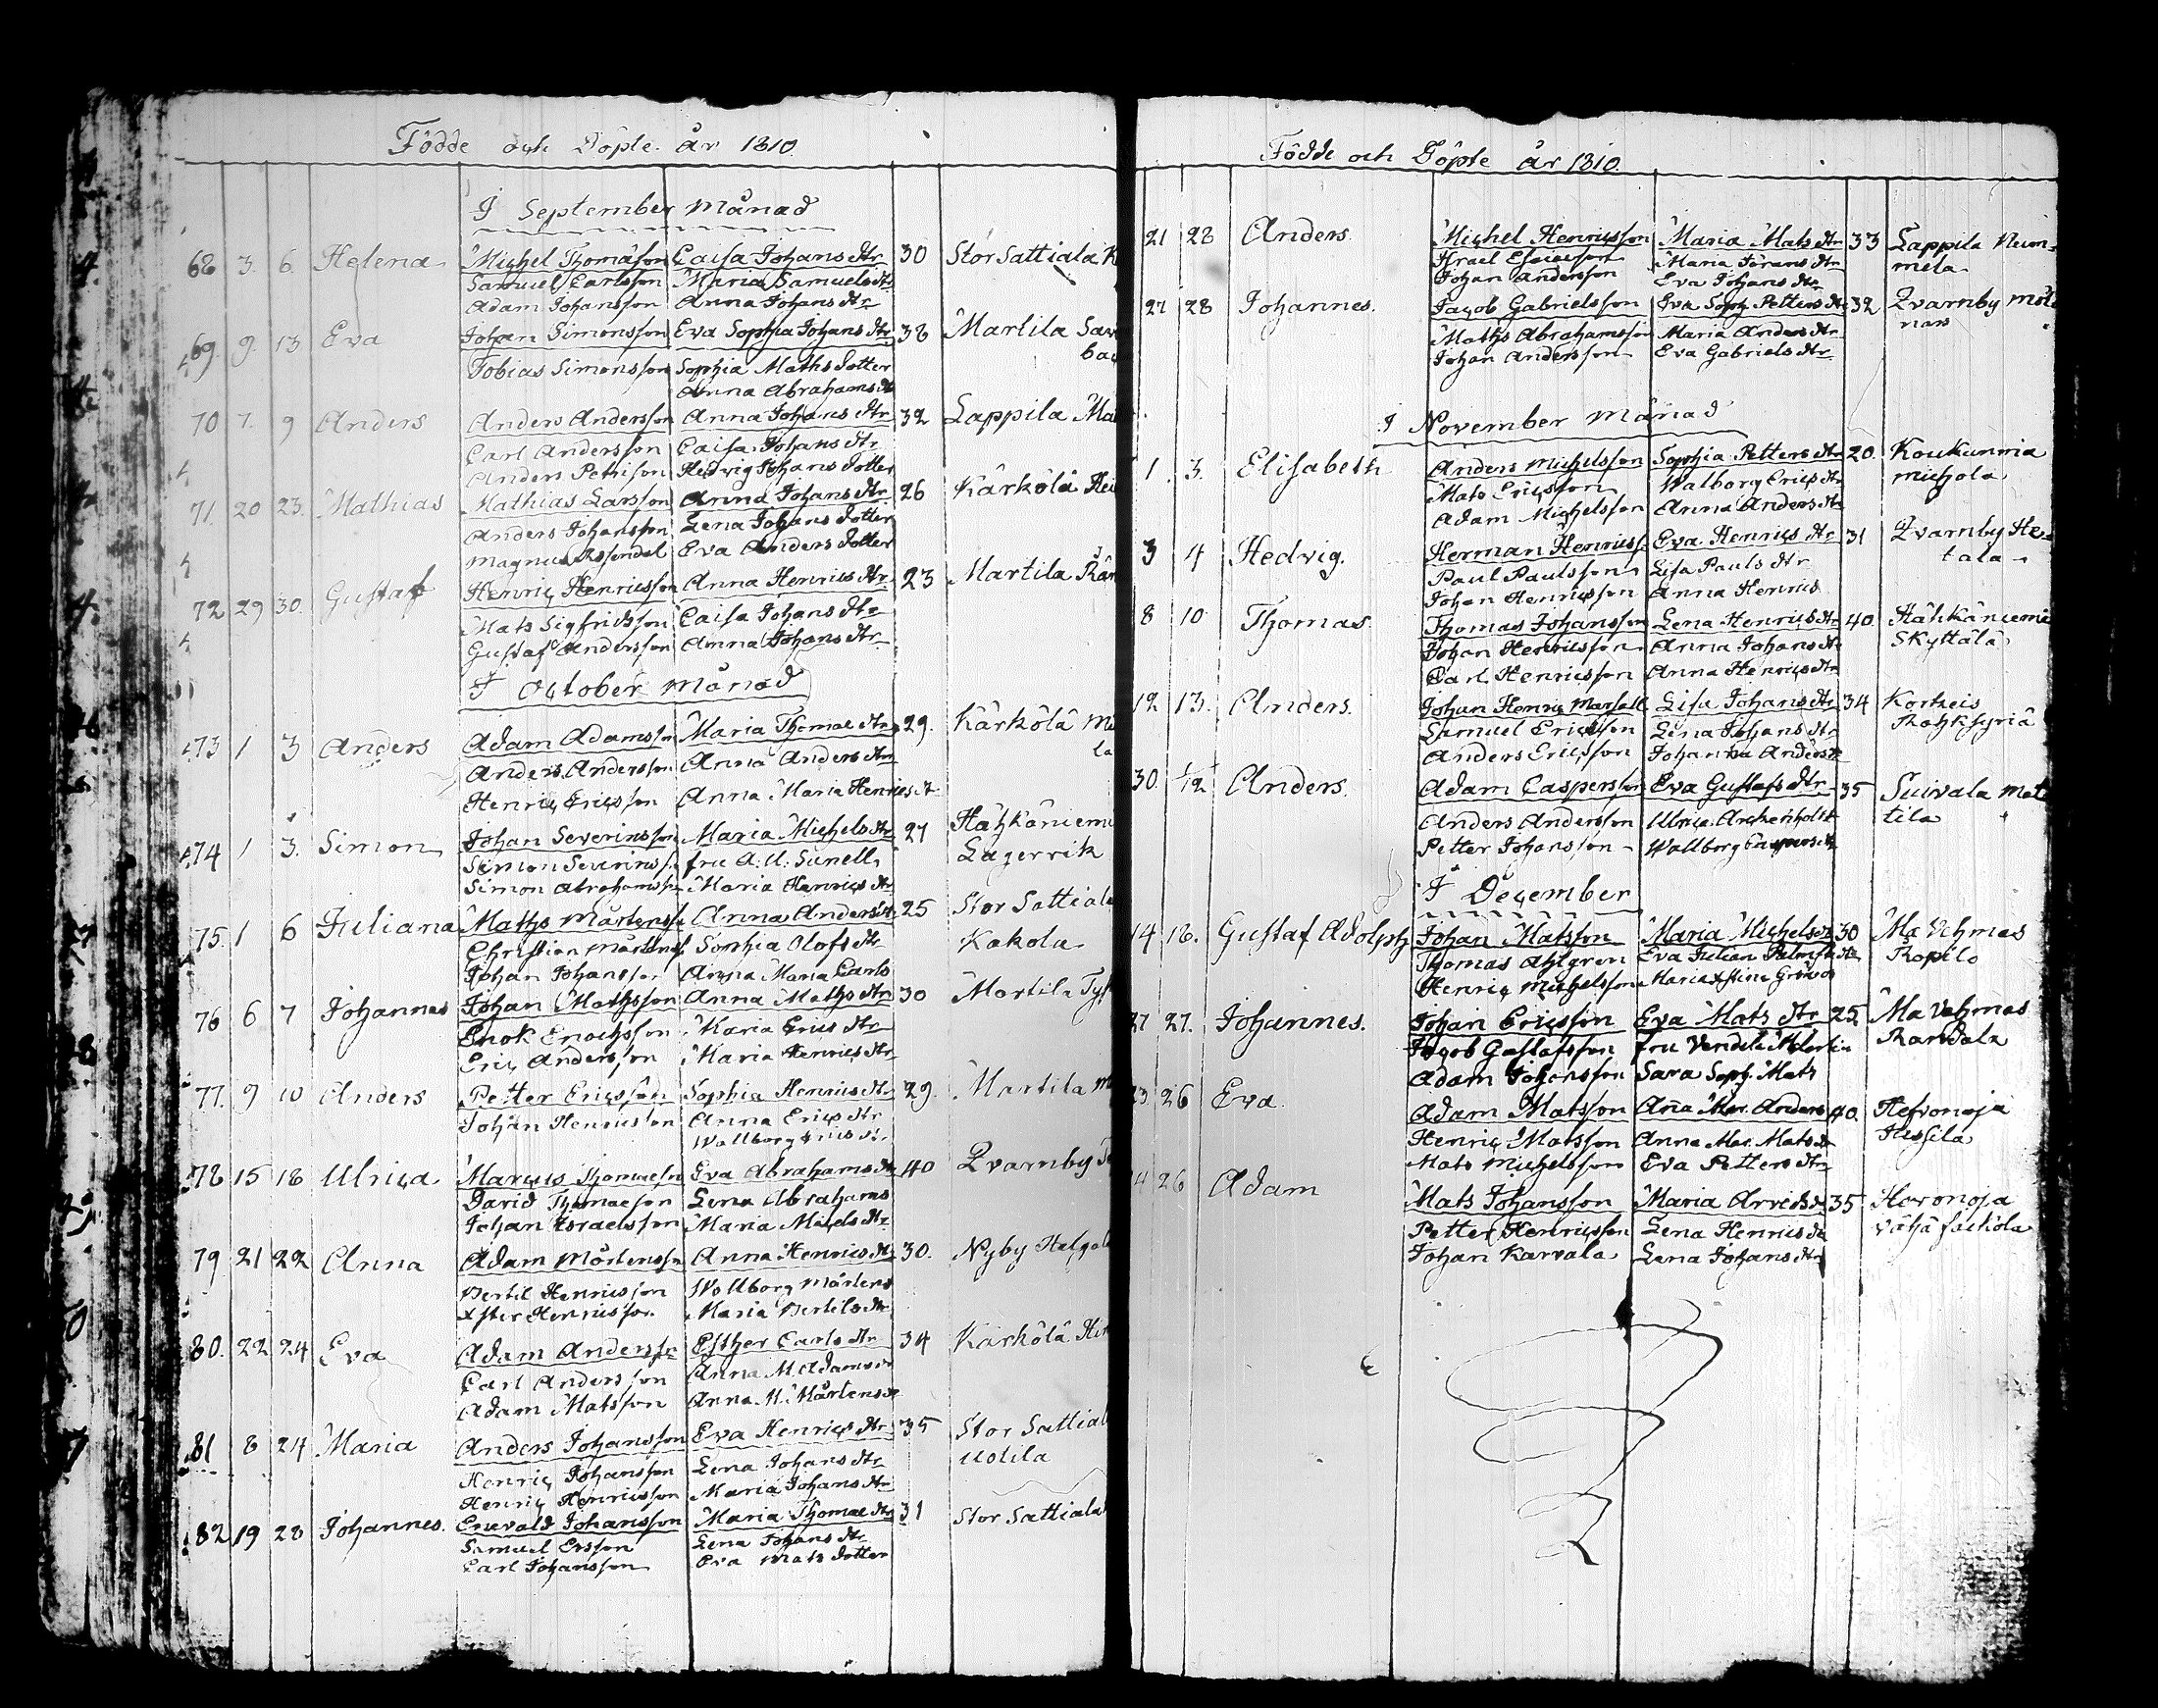 Födde och Döpte år 1810.
I September Månad
68 3. 6. Helena Michel Thomasson Caisa Johans dtr 30 Stor Sattiala
Samuel Carlsson Maria Samuels dtr
Adam Johansson Anna Johans dtr
69. 9. 13 Eva Johan Simonsson Eva Sophia Johans dtr 38 Martila
Tobias Simonsson Sophia Maths dotter
Anna Abrahams dr
70 7. 9 Anders Anders Andersson Anna Johans dtr 32 Lappila
Carl Andersson Caisa Johans dtr
Anders Petrison Hedvig Johans dotter
71. 20 23. Mathias Mathias Larsson Anna Johans dtr 26 Kärkölä
Anders Johansson Lena Johans dotter
Magnus Eva Anders dotter
72 29 30. Gustaf Henric Henricsson Anna Henrics dtr 23 Martila
Mats Sigfridsson Caisa Johans dtr
Gustaf Andersson Anna Johans dtr
I October Månad
73 1 3 Anders Adam Adamsson Maria Thomae dtr 29. Kärkölä
la
Anders Andersson Anna Anders dtr
Henric Ericsson Anna Maria Henrics dr
74 1 3. Simon Johan Severinsson Maria Michels dtr 27 Hähkäniemi
Simon Severinss. fru A: U: Sunell Lagervik
Simon Abrahamsson Maria Henrics dtr
75. 1 6 Juliana Maths Mårtenss. Anna Anders dr 25 Stor Sattiala
Christian Mårtenss. Sophia Olofs dtr Kakola
Johan Johansson Anna Maria Carls
76 6 7 Johannes Johan Mathsson Anna Maths dtr 30 Martila
Enok Enochsson Maria Erics dtr
Eric Andersson Maria Henrics dtr
77. 9 10 Anders Petter Ericsson Sophia Henrics dtr 29. Martila
Johan Henricsson Anna Erics dtr
Wallborg
78 15 18 Ulrica Marcus Thomaeson Eva Abrahams dtr 40 Qvarnby
David Thomaeson Lena Abrahams
Johan Israelsson Maria Michels dtr
79 21 22 Anna Adam Mårtensson Anna Henrics dtr 30. Nyby
Bertil Henricsson Wallborg Mårtens
Henricsson Maria Bertils dtr
80. 22 24 Eva Adam Anderss Esther Carls dtr 34 Kärkölä
Carl Andersson Anna M. Adams dr
Adam Matsson Anna M. Mårtens dr
81 8 24 Maria Anders Johansson Eva Henrics dtr 35 Stor Sattiala
Henric Johansson Lena Johans dtr Uotila
Henric Henricsson Maria Johans dtr
82 19 28 Johannes. Enevald Johansson Maria Thomae dtr 31 Stor Sattiala
Samuel Ersson Lena Johans dtr
Carl Johansson Eva Mats dotter
Födde och Döpte år 1810.
21 28 Anders. Michel Henricsson Maria Mats dtr 33 Lappila Num-
mela
Israel Maria Jörans dtr
Johan Andersson Eva Johans dtr
27 28 Johannes. Jacob Gabrielsson Eva Soph. Petters dr 32 Qvarnby
Maths Abrahamsson Maria Anders dtr
Johan Andersson Eva Gabriels dtr
I November Månad
1. 3. Elisabeth Anders Michelsson Sophia Petters dtr 20. Koukunmia
Mats Ericsson Walborg Erics dtr michola
Adam Michelsson Anna Anders dtr
3 4 Hedvig. Herman Henricss. Eva Henrics dtr 31 Qvarnby
tala
Paul Paulsson Lisa Pauls dtr
Johan Henricsson Anna Henrics
8 10 Thomas. Thomas Johansson Lena Henrics dtr 40. Hähkäniemi
Johan Henricsson Anna Johans dtr Skyttälä
Carl Henricsson Anna Henrics dtr
12 13. Anders. Johan Henric Lisa Johans dtr 34 Korkeis
Samuel Ericsson Lena Johans dtr
Anders Ericsson Johanna Anders dr
30. 1/12 Anders. Adam Caspersson Eva Gustafs dtr 35 Suivala Mat
tila
Anders Andersson Ulrica
Petter Johansson Wallborg Caspers dr
I December
14 18. Gustaf Adolph Johan Matsson Maria Michels dr 30 Ma Vehmas
Thomas Ahlgren Eva Ropilo
Henric Michelsson Maria
27 27. Johannes. Johan Ericsson Eva Mats dtr 25 Ma Vehmas
Jacob Gustafsson fru Randala
Adam Johansson Sara Soph. Mats
23 26 Eva. Adam Matsson Anna Mar. Anders 40.
Henric Matsson Anna Mar. Mats dr
Mats Michelsson Eva Petters dtr
24 26 Adam Mats Johansson Maria Arvids dr 35
Petter Henricsson Lena Henrics dr
Johan Karvala Lena Johans dtr